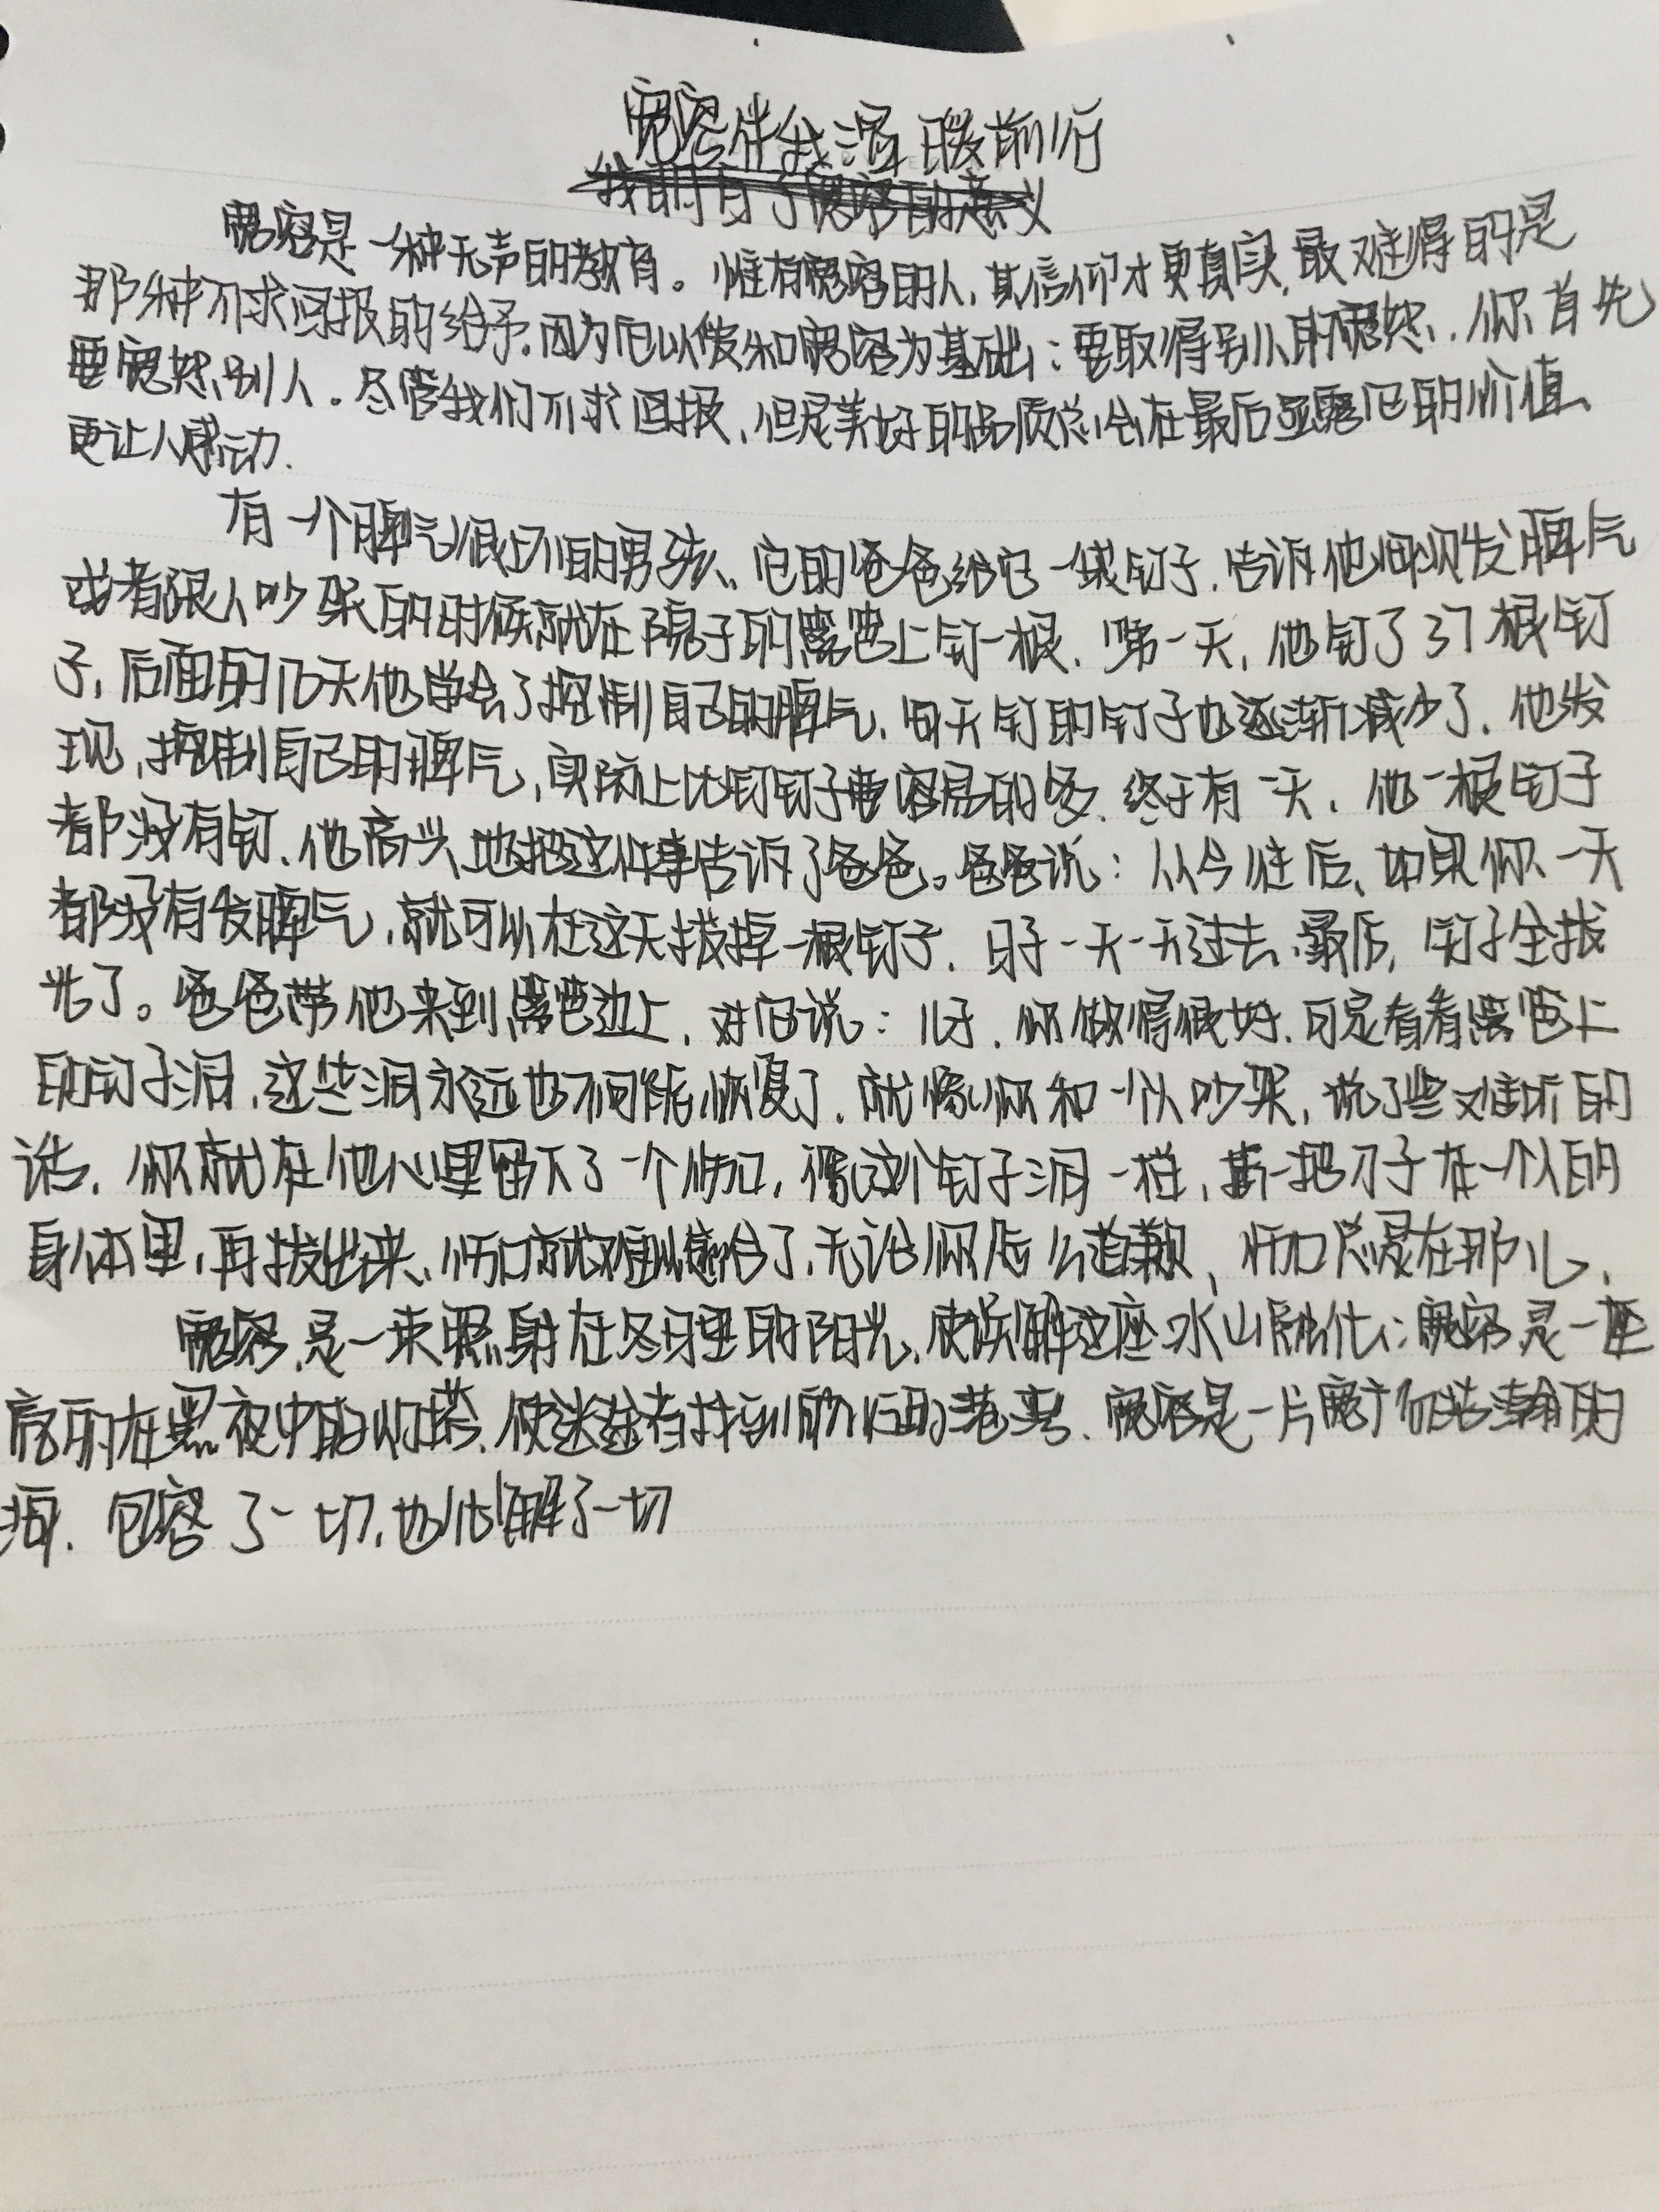 宽容伴我温暖前行
我明白了宽容的意义
宽容是一种无声的教育。惟有宽容的人,其信仰才更真实.最难得的是
那种不求回报的给予.因为它以爱和宽容为基础:要取得别人的宽恕.你首先
要宽恕别人。尽管我们不求回报,但是美好的品质总会在最后显露它的价值、
更让人感动.
有一个脾气很坏的男孩、它的爸爸给它一袋钉子.告诉他每次发脾气
或者跟人吵架的时候就在院子的篱笆上钉一根.第一天,他钉了37根钉
子,后面的几天他学会了控制自己的脾气,每天钉的钉子也逐渐减少了.他发
现,控制自己的脾气,实际上比钉钉子要容易的多.终于有一天.他一根钉子
都没有钉.他高兴地把这件事告诉了爸爸。爸爸说:从今往后、如果你一天
都没有发脾气,就可以在这天拔掉一根钉子.日子一天一天过去,最后,钉子全拔
光了。爸爸带他来到篱笆边上,对他说:儿子.你做得很好.可是看看篱笆上
的钉子洞,这些洞永远也不可能恢复了.就像你和一个人吵架,说了些难听的
话.你就在他心里留下了一个伤口,像这个钉子洞一样,插一把刀子在一个人的
身体里,再拔出来、伤口就难以愈合了,无论你怎么道歉、伤口总是在那儿、
宽容,是一束照射在冬日里的阳光,使误解这座冰山融化;宽容,是一座
亮丽在黑夜中的灯塔.使迷途者找到航行的港湾.宽容是一片宽广而浩瀚的
海.包容了一切,也化解了一切